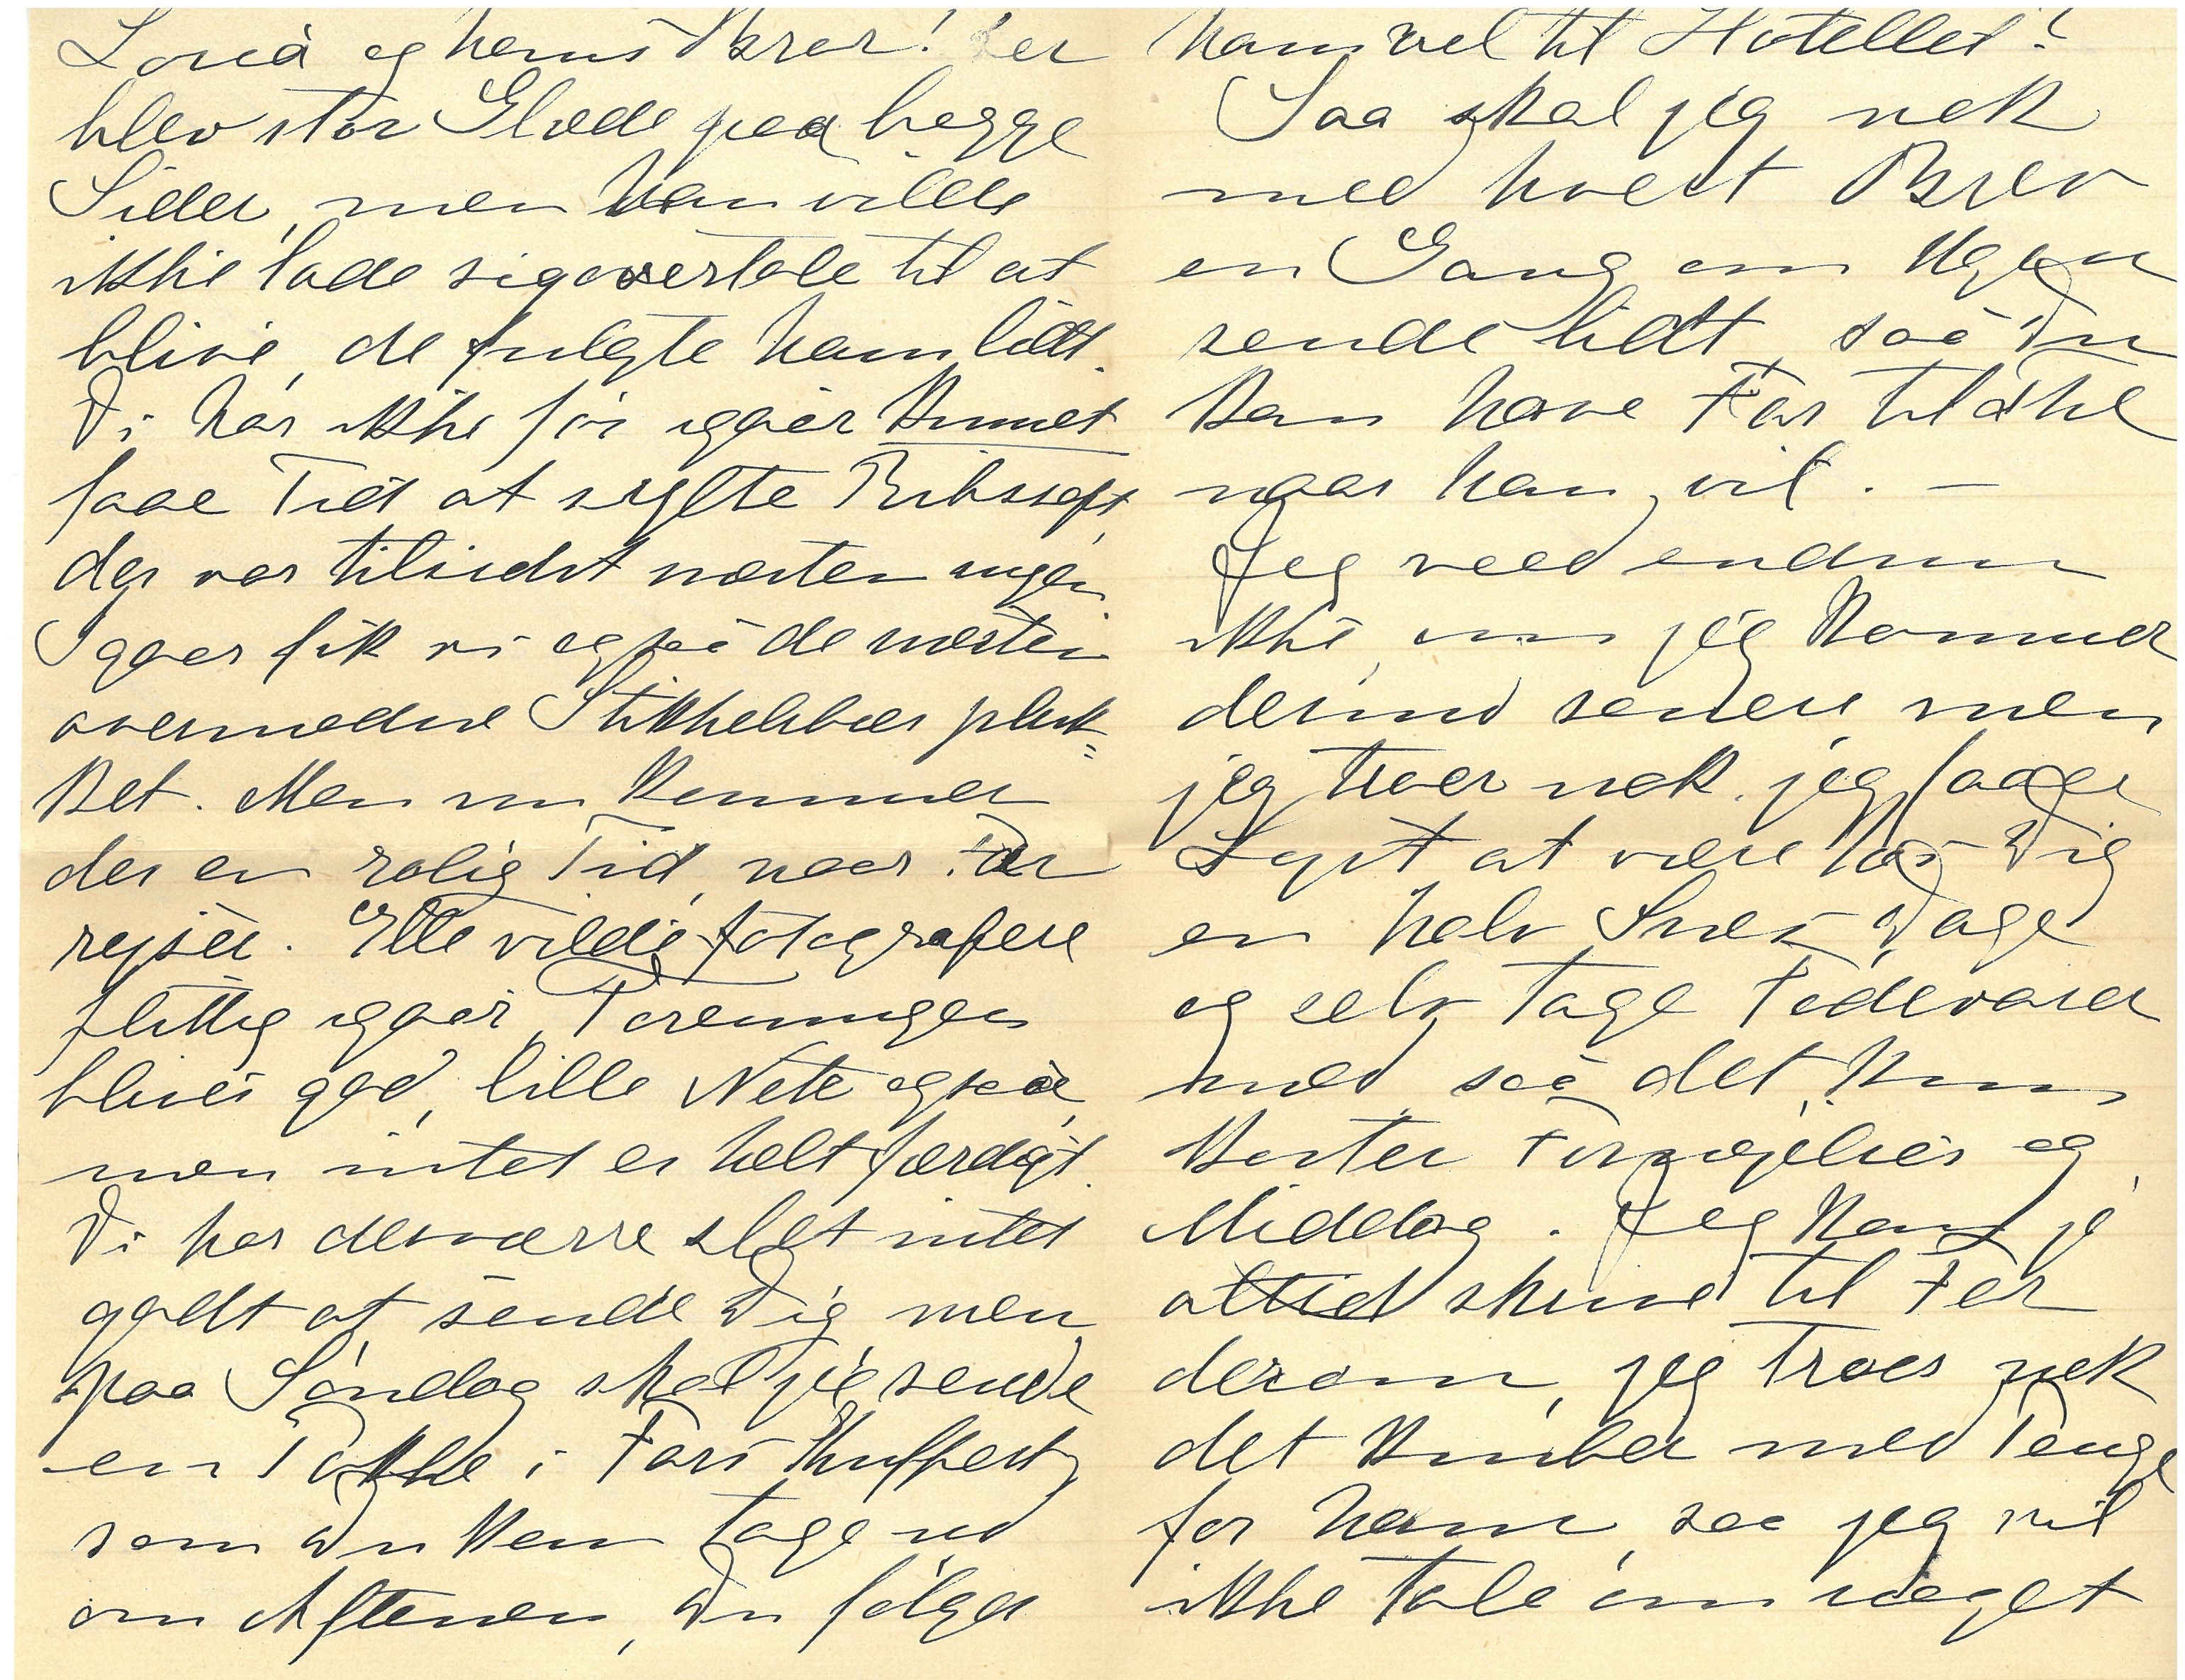 Loria og hans Bror! Der
blev stor Glæde paa begge
Sider, men Han vilde
ikke lade sig overtale til at
blive, de fulgte ham lidt.
Vi har ikke før igaar kunnet
faae Tid at sylte Ribssaft,
der var tilsidst næsten ingen
Igaar fik vi ogsaa de næsten
overmodne Stikkelsbær pluk=
ket. Men nu kommer
der en rolig Tid, naar Far
rejser. Elle vilde fotografere
flittig igaar, Foreningen
bliver god, lille Nete ogsaa,
men intet er helt færdigt.
Vi har desværre slet intet
godt at sende Dig men
paa Søndag skal jeg sende
en Pakke i Fars Kuffert
som Du kan tage ud
om Aftenen, Du følger
ham vel til Hotellet?
Saa skal jeg nok
med hvert Brev
en Gang om Ugen
sende lidt, saa Du
kan have Far til The
naar han vil. —
Jeg veed endnu
ikke, om jeg kommer
derind senere, men
jeg troer nok jeg faaer
Lyst at være hos Dig
en halv Snes Dage
og selv tage Fødevarer
med, saa det kun
koster Fornøjelser og
Middag. Jeg kan jo
altid skrive til Far
derom, jeg troer nok
det kniber med Penge
for ham, saa jeg vil
ikke tale om noget